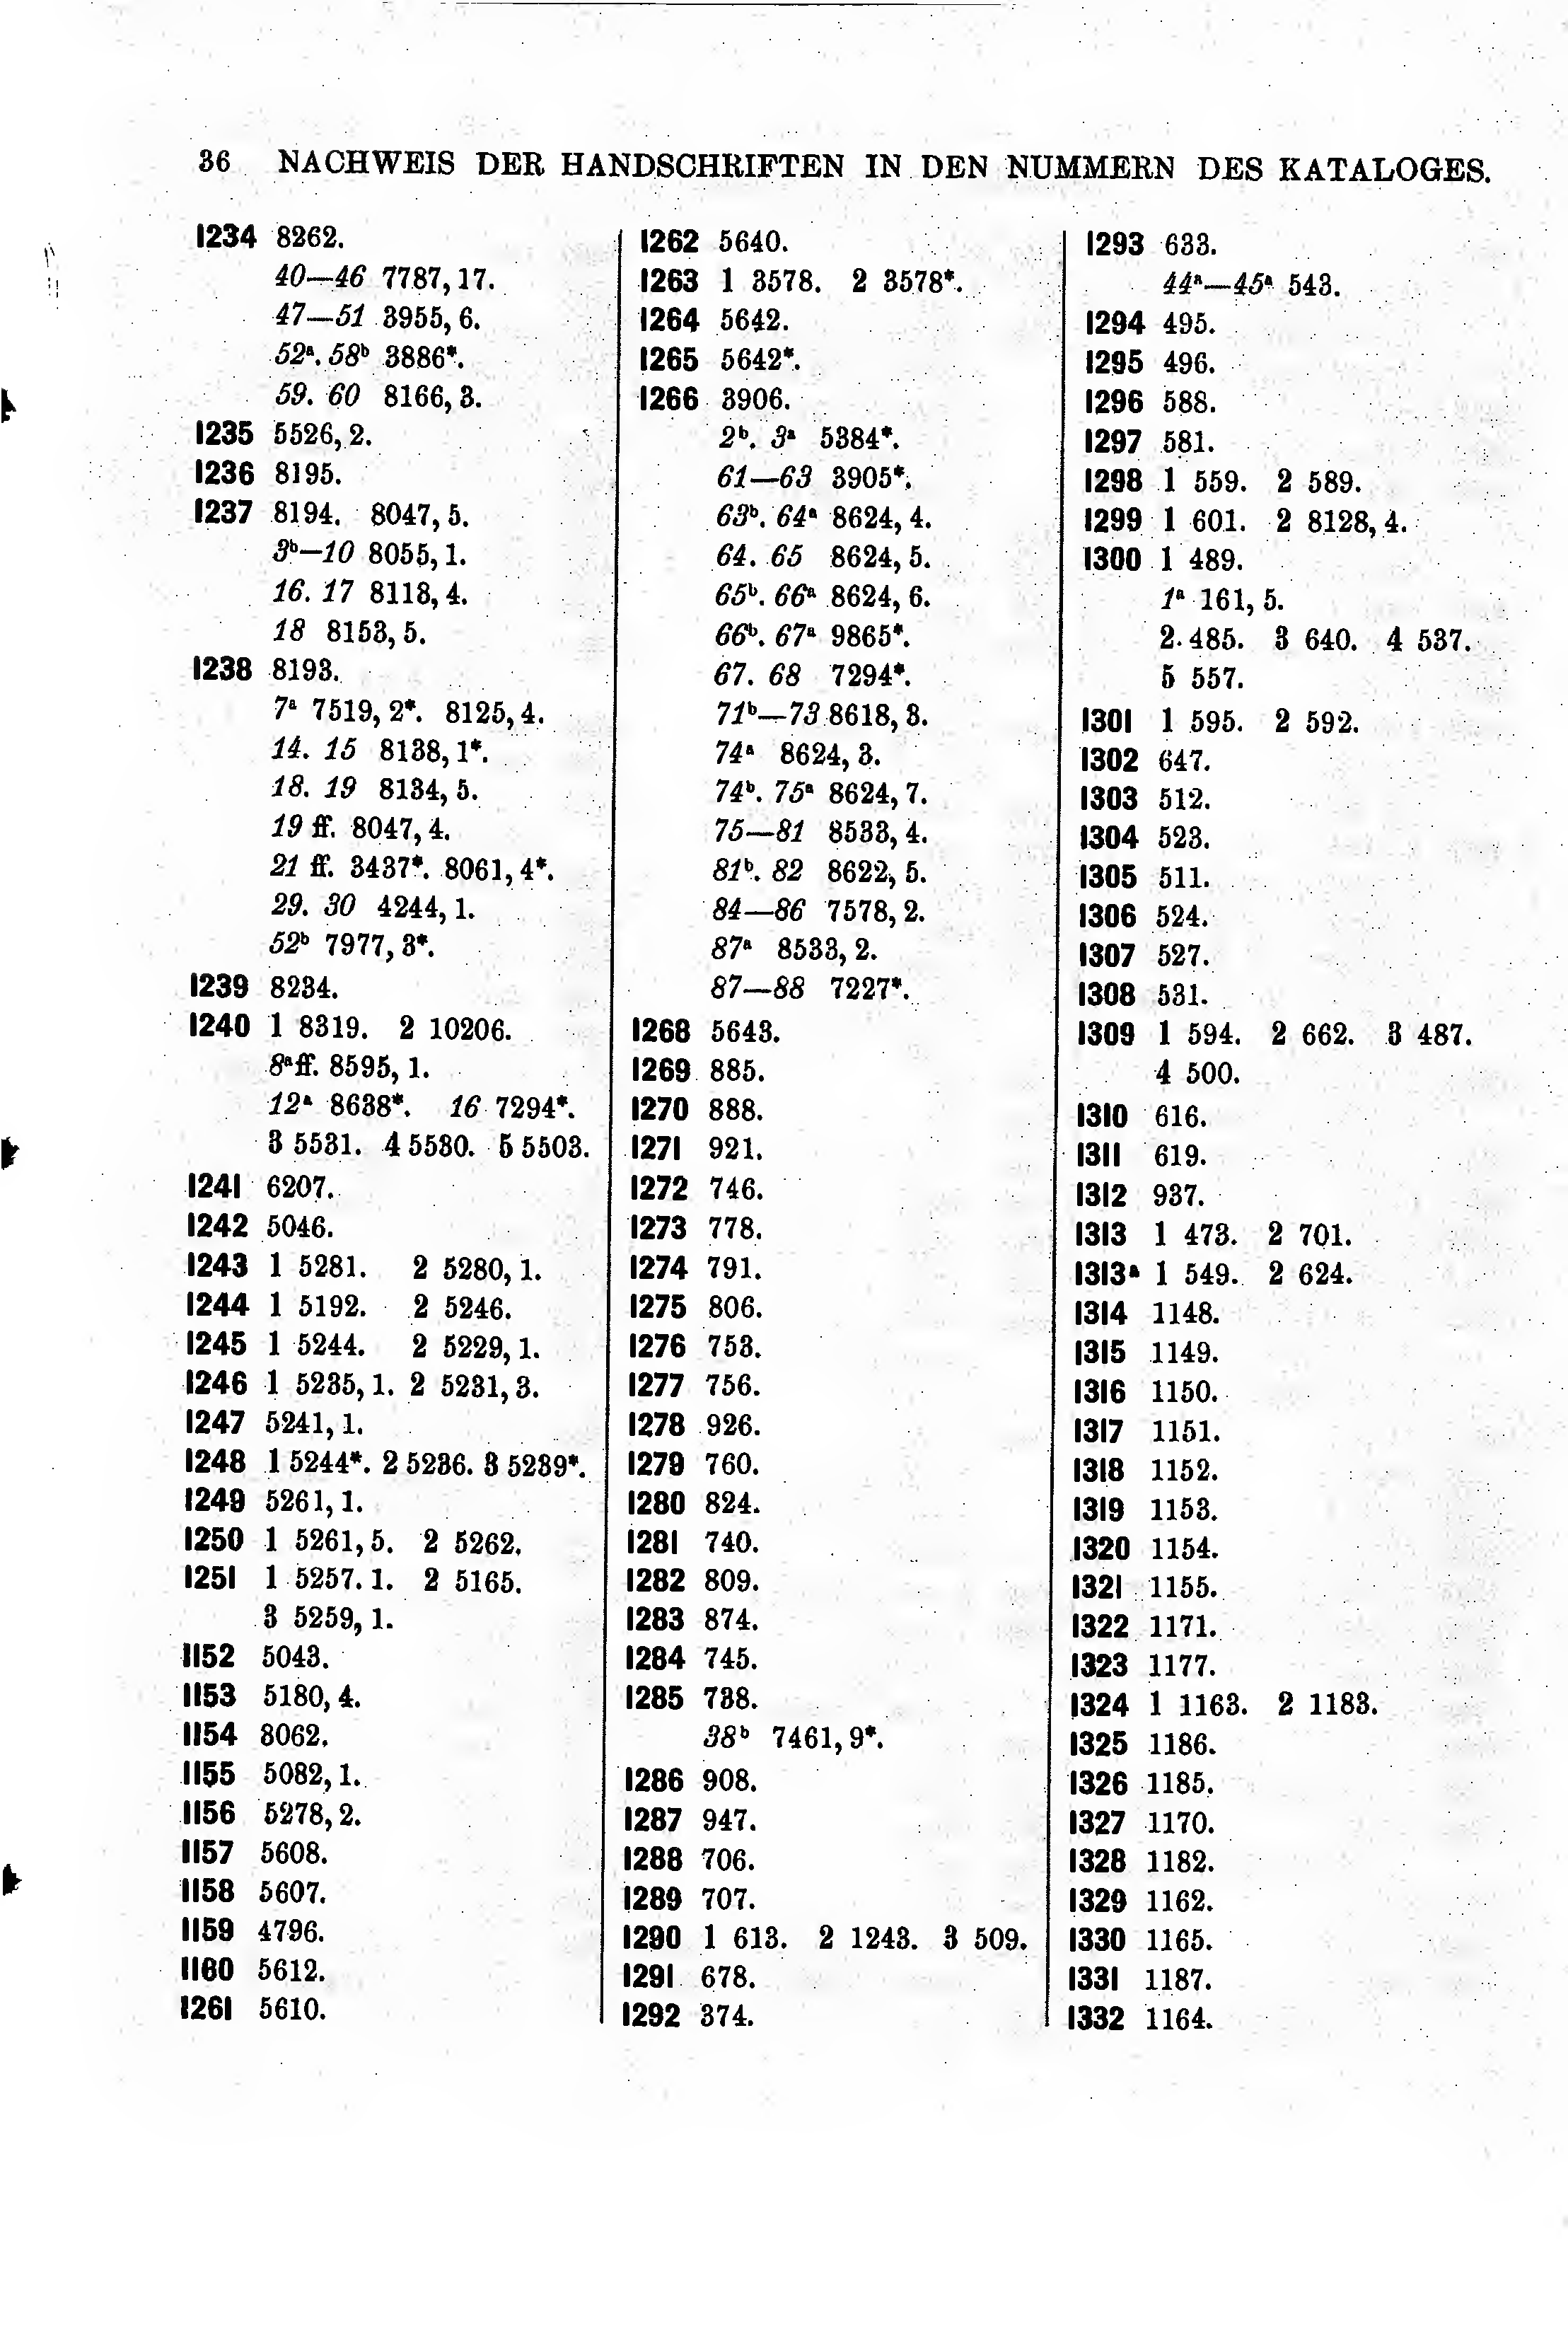 36 NACHWEIS DER HANDSCHRIFTEN IN DEN NUMMERN DES KATALOGES.
1234 8262.
40—46 7787, 17.
47—51 3955, 6.
52ᵃ. 58ᵇ 3886*.
59. 60 8166, 3.
1235 5526, 2.
1236 8195.
1237 8194. 8047, 5.
3ᵇ—10 8055, 1.
16. 17 8118, 4.
18 8153, 5.
1238 8193.
7ᵃ 7519, 2*. 8125, 4.
14. 15 8138, 1*.
18. 19 8134, 5.
19 ff. 8047, 4.
21 ff. 3437*. 8061, 4*.
29. 30 4244, 1.
52ᵇ 7977, 3*.
1239 8234.
1240 1 8319. 2 10206.
8ᵃff. 8595, 1.
12ᵃ 8638*. 16 7294*.
3 5531. 4 5530. 5 5503.
1241 6207.
1242 5046.
1243 1 5281. 2 5280, 1.
1244 1 5192. 2 5246.
1245 1 5244. 2 5229, 1.
1246 1 5235, 1. 2 5231, 3.
1247 5241, 1.
1248 1 5244*. 2 5236. 3 5239*.
1249 5261, 1.
1250 1 5261, 5. 2 5262.
1251 1 5257. 1. 2 5165.
3 5259, 1.
1152 5043.
1153 5180, 4.
1154 8062.
1155 5082, 1.
1156 5278, 2.
1157 5608.
1158 5607.
1159 4796.
1160 5612.
1261 5610.
1262 5640.
1263 1 3578. 2 3578*.
1264 5642.
1265 5642*.
1266 3906.
2ᵇ. 3ᵃ 5384*.
61—63 3905*.
63ᵇ. 64ᵃ 8624, 4.
64. 65 8624, 5.
65ᵇ. 66ᵃ 8624, 6.
66ᵇ. 67ᵃ 9865*.
67. 68 7294*.
71ᵇ—73 8618, 3.
74ᵃ 8624, 3.
74ᵇ. 75ᵃ 8624, 7.
75—81 8533, 4.
81ᵇ. 82 8622, 5.
84—86 7578, 2.
87ᵃ 8533, 2.
87—88 7227*.
1268 5643.
1269 885.
1270 888.
1271 921.
1272 746.
1273 778.
1274 791.
1275 806.
1276 753.
1277 756.
1278 926.
1279 760.
1280 824.
1281 740.
1282 809.
1283 874.
1284 745.
1285 738.
38ᵇ 7461, 9*.
1286 908.
1287 947.
1288 706.
1289 707.
1290 1 613. 2 1243. 3 509.
1291 678.
1292 374.
1293 633.
44ᵃ—45ᵃ 543.
1294 495.
1295 496.
1296 588.
1297 581.
1298 1 559. 2 589.
1299 1 601. 2 8128, 4.
1300 1 489.
1ᵃ 161, 5.
2 485. 3 640. 4 537.
5 557.
1301 1 595. 2 592.
1302 647.
1303 512.
1304 523.
1305 511.
1306 524.
1307 527.
1308 531.
1309 1 594. 2 662. 3 487.
4 500.
1310 616.
1311 619.
1312 937.
1313 1 473. 2 701.
1313ᵃ 1 549. 2 624.
1314 1148.
1315 1149.
1316 1150.
1317 1151.
1318 1152.
1319 1153.
1320 1154.
1321 1155.
1322 1171.
1323 1177.
1324 1 1163. 2 1183.
1325 1186.
1326 1185.
1327 1170.
1328 1182.
1329 1162.
1330 1165.
1331 1187.
1332 1164.